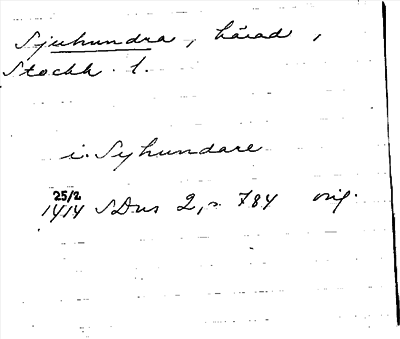 Sjuhundra, härad,
Stockh. l.
i. Syhundare
25/2
1414 SDns 2, s. 784 orig.